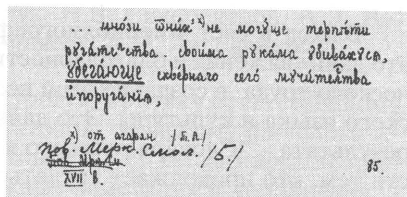 ... мнѡзи ѿни́хꙿ ˣ⁾ не могꙋще терпѣти
рꙋга́телства. свои́ма рꙋка́ма ᲂу҆бива́хꙋсѧ,
ᲂу҆бега́юще скве́рнаго сего̀ мꙋчи́телства
и҆порꙋга́нїѧ,
ˣ⁾ от агарян. /Б.А./
Пов. Мерк. Смол. /Б/
XVII в.
85.